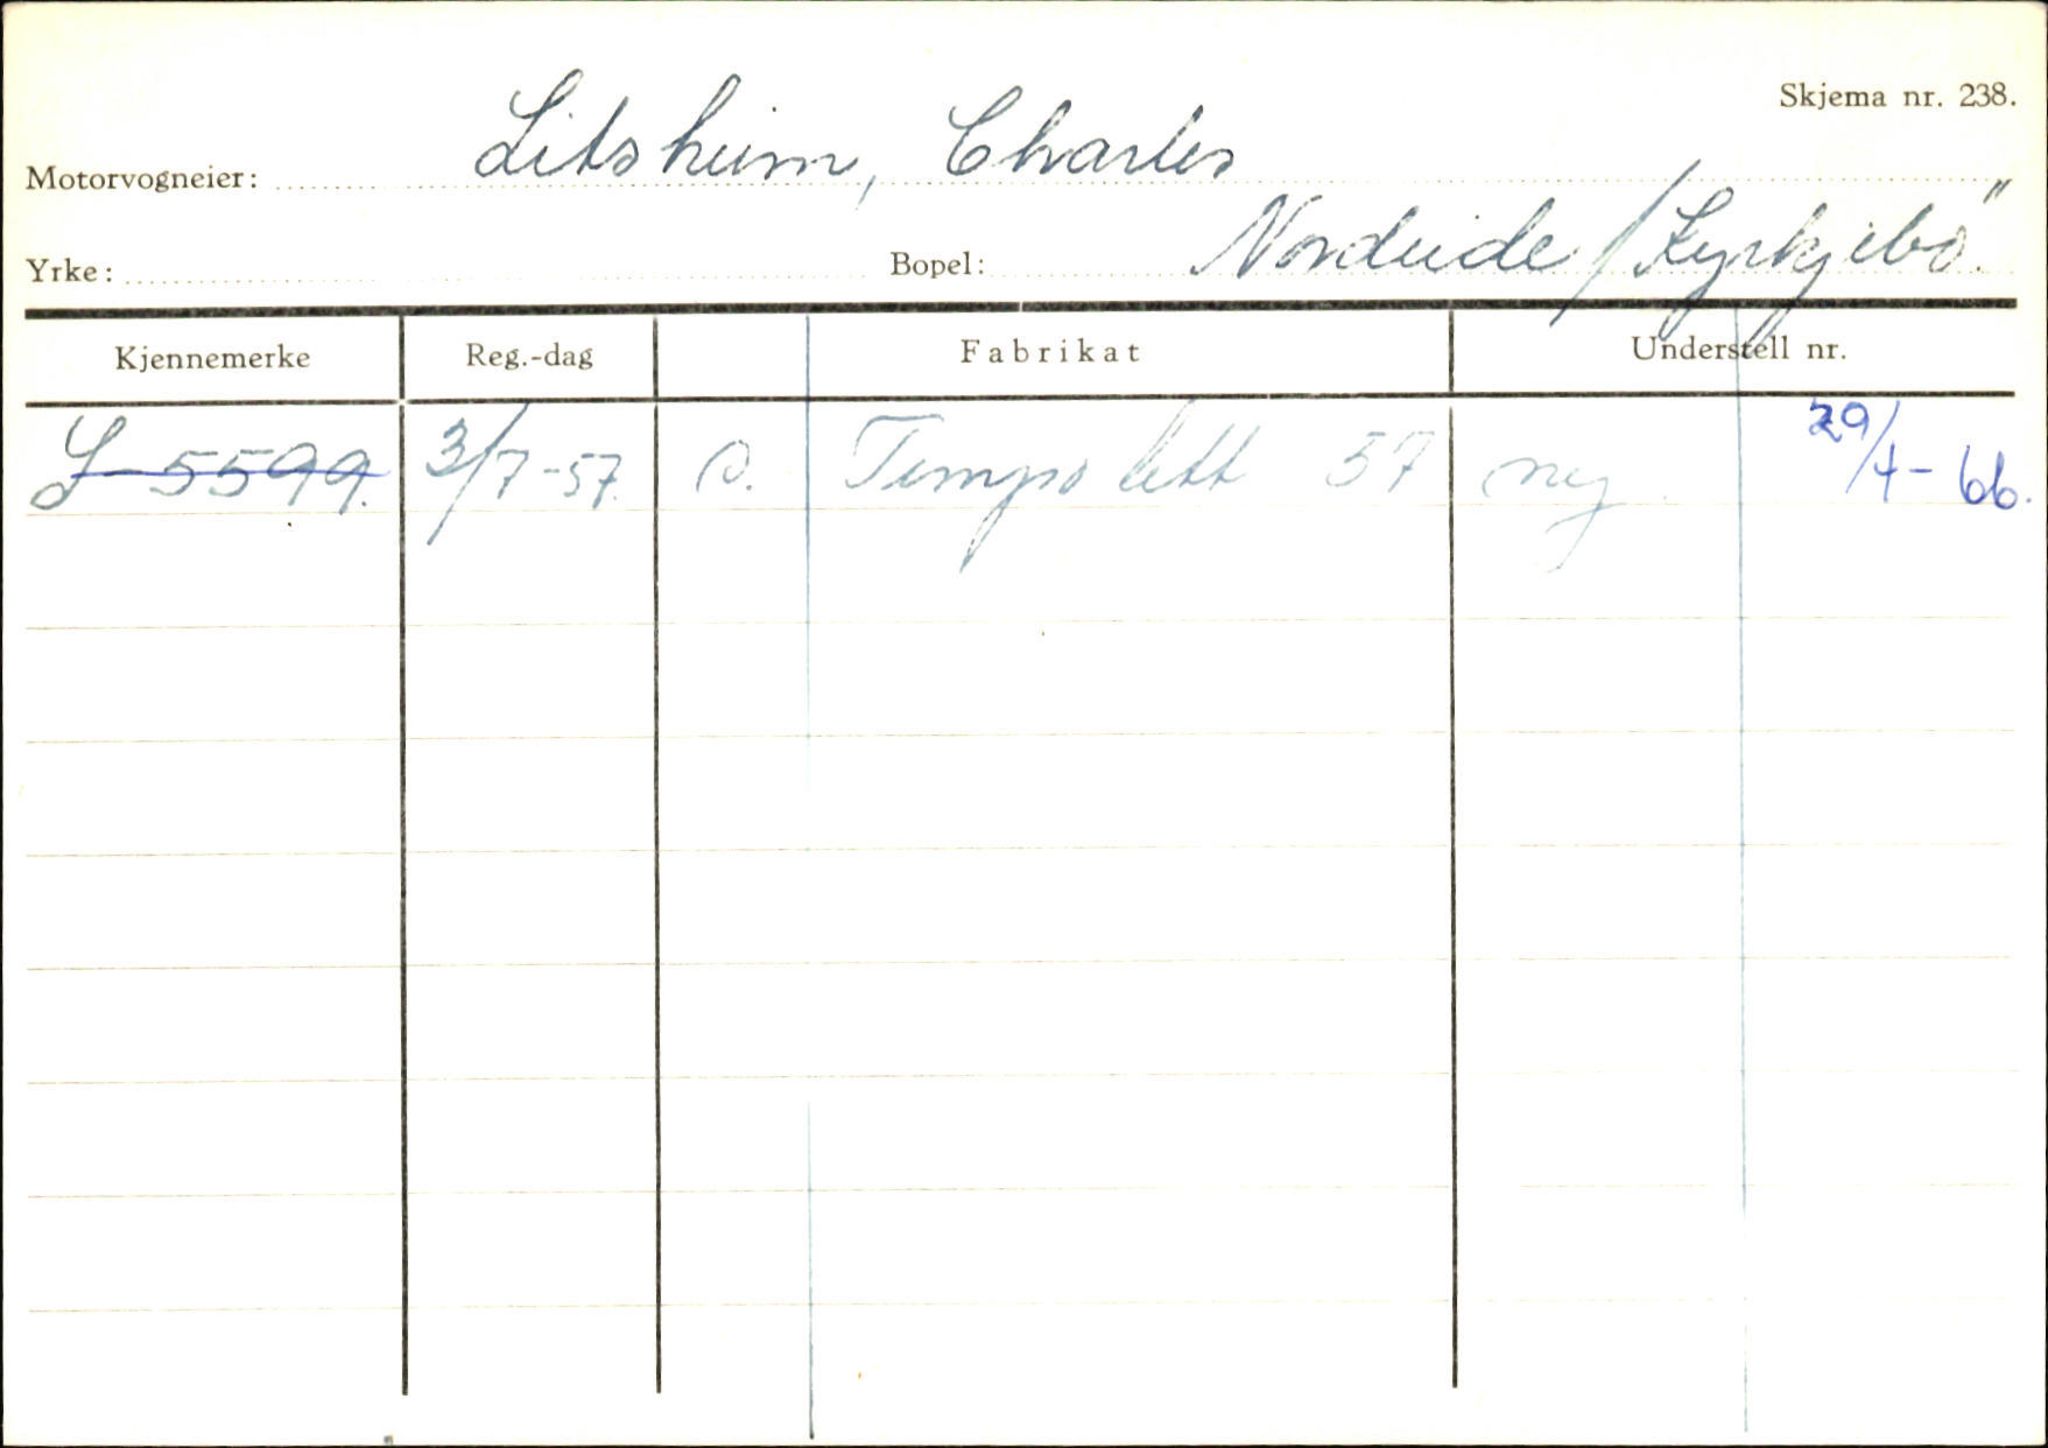 Skjema nr. 238.
Motorvogneier: Litsheim, Charles
Yrke: Bopel: Nordeide / Kyrkjebö.
Kjennemerke Reg.-dag Fabrikat Understell nr.
S-5599. 3/7-57. Tempo lett 57 ny. 29/4-66.